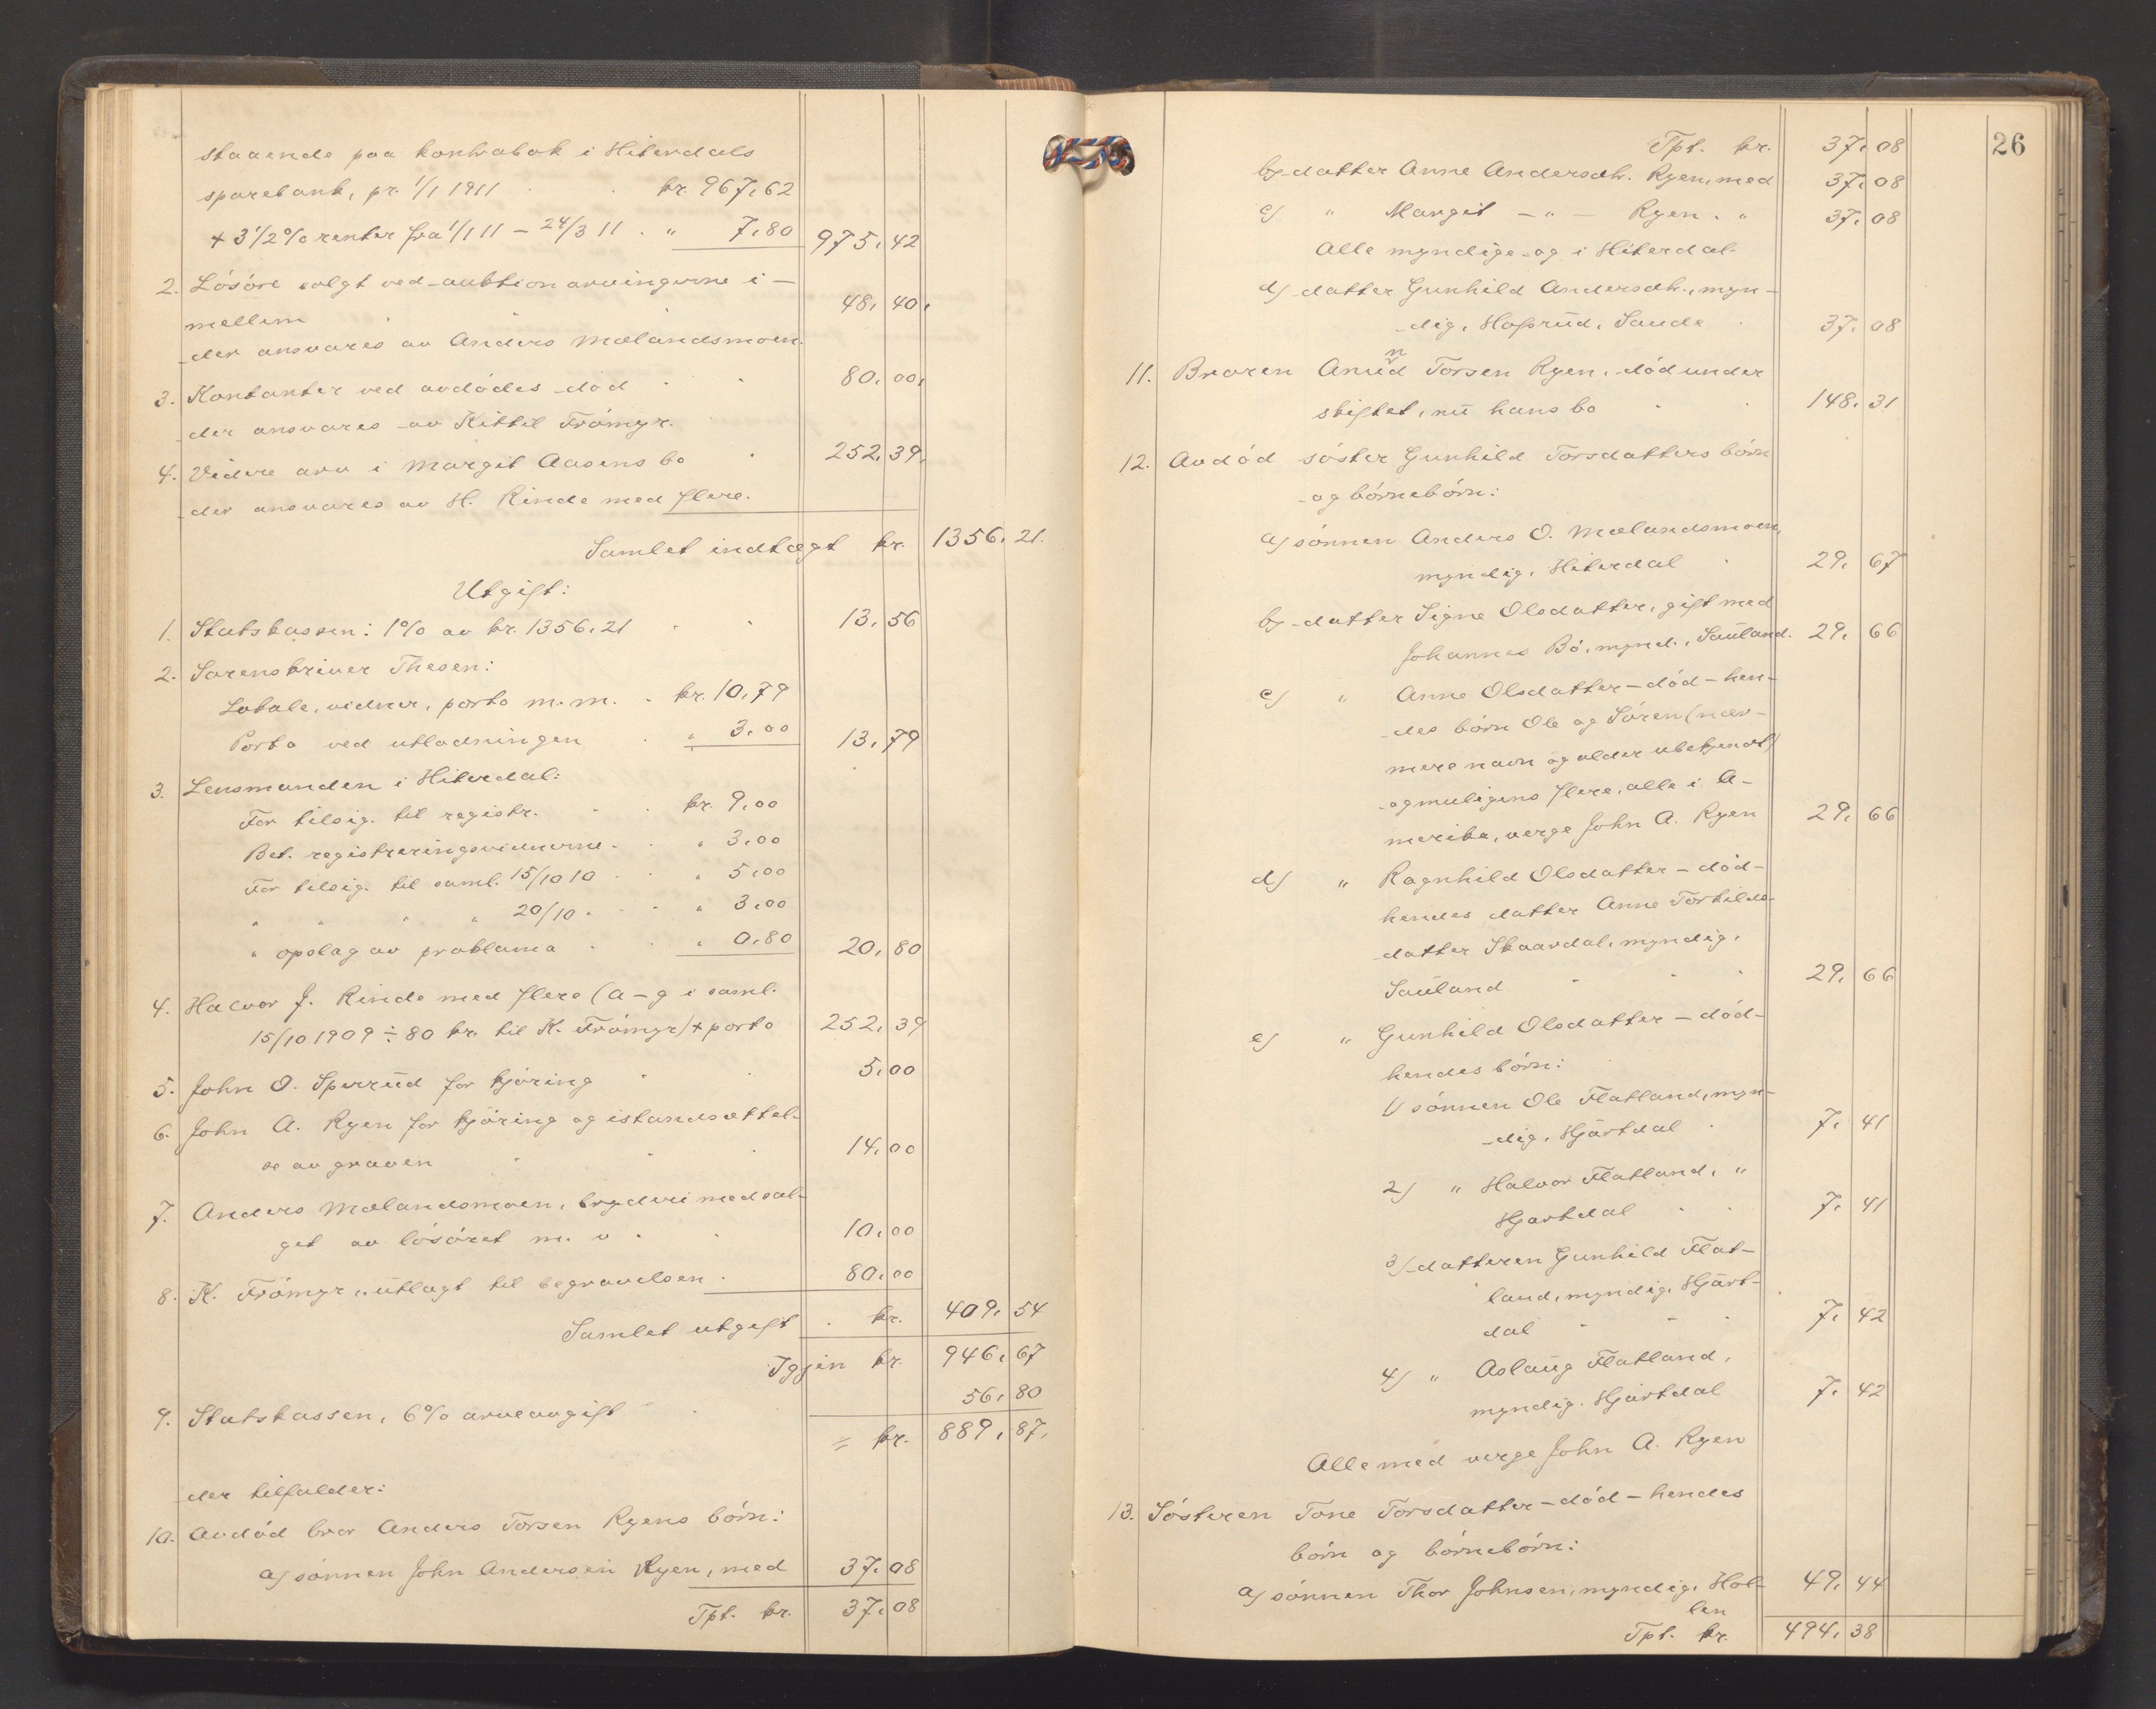 staaende paa kontrabok i Hiterdals
sparebank, pr. 1/1 1911 kr. 967,62
+ 3 1/2 % renter fra 1/1 11 – 24/3 11 . " 7,80 975,42
2. Lösöre solgt ved auktion arvingerne i-
mellem 48,40,
der ansvares av Anders Mælandsmoen.
3. Kontanter ved avdödes död 80,00,
der ansvares av Kittil Frömyr.
4. Videre arv i Margit Aasens bo 252,39,
der ansvares av H. Rinde med flere.
Samlet indtægt kr. 1356,21.
Utgift:
1. Statskassen: 1% av kr. 1356,21 13,56
2. Sorenskriver Thesen:
Lokale, vidner, porto m.m. . kr. 10,79
Porto ved utlodningen " 3,00 13,79
3. Lensmanden i Hiterdal:
For tilsig. til registr. kr. 9,00
Bet. registreringsvidnerne . " 3,00
For tilsig. til saml. 15/10 10 " 5,00
" " " " 20/10 . " 3,00
" opslag av proklama " 0,80 20,80
4. Halvor J. Rinde med flere (a–g i saml.
15/10 1909 ÷ 80 kr. til K. Frömyr) + porto 252,39
5. John O. Sperrud for kjöring 5,00
6. John A. Ryen for kjöring og istandsættel-
se av graven 14,00
7. Anders Mælandsmoen, bryderi med sal-
get av lösöret m. v. 10,00
8. K. Frömyr, utlagt til begravelsen . 80,00
Samlet utgift . kr. 409,54
Igjen kr. 946,67
9. Statskassen, 6% arveavgift 56,80
= kr. 889,87,
der tilfalder:
10. Avdöd bror Anders Torsen Ryens börn:
a) sönnen John Andersen Ryen, med 37,08
Tpt. kr. 37,08
26
Tpt. kr. 37,08
b) datter Anne Andersdtr. Ryen, med 37,08
c) " Margit – " – Ryen, " 37,08
Alle myndige og i Hiterdal.
d) datter Gunhild Andersdtr., myn-
dig, Hofsrud, Saude 37,08
11. Broren Anund Torsen Ryen, död under
skiftet, nu hans bo 148,31
12. Avdöd söster Gunhild Torsdatters börn
og börnebörn:
a) sönnen Anders O. Mælandsmoen,
myndig, Hiterdal 29,67
b) datter Signe Olsdatter, gift med
Johannes Bö, mynd., Sauland. 29,66
c) " Anne Olsdatter – död – hen-
des börn Ole og Sören (nær-
mere navn og alder ubekjendt)
og muligens flere, alle i A-
merika, verge John A. Ryen 29,66
d) " Ragnhild Olsdatter – död –
hendes datter Anne Torkilds-
datter Skaardal, myndig,
Sauland 29,66
e) " Gunhild Olsdatter – död –
hendes börn:
1) sönnen Ole Flatland, myn-
dig, Hjartdal 7,41
2) " Halvor Flatland, "
Hjartdal 7,41
3) datteren Gunhild Flat-
land, myndig, Hjart-
dal 7,42
4) " Aslaug Flatland,
myndig. Hjartdal 7,42
Alle med verge John A. Ryen
13. Sösteren Tone Torsdatter – död – hendes
börn og börnebörn:
a) sönnen Thor Johnsen, myndig, Hol- 49,44
len
Tpt. kr. 494,38